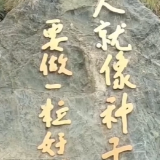 人就像种子
要做一粒好